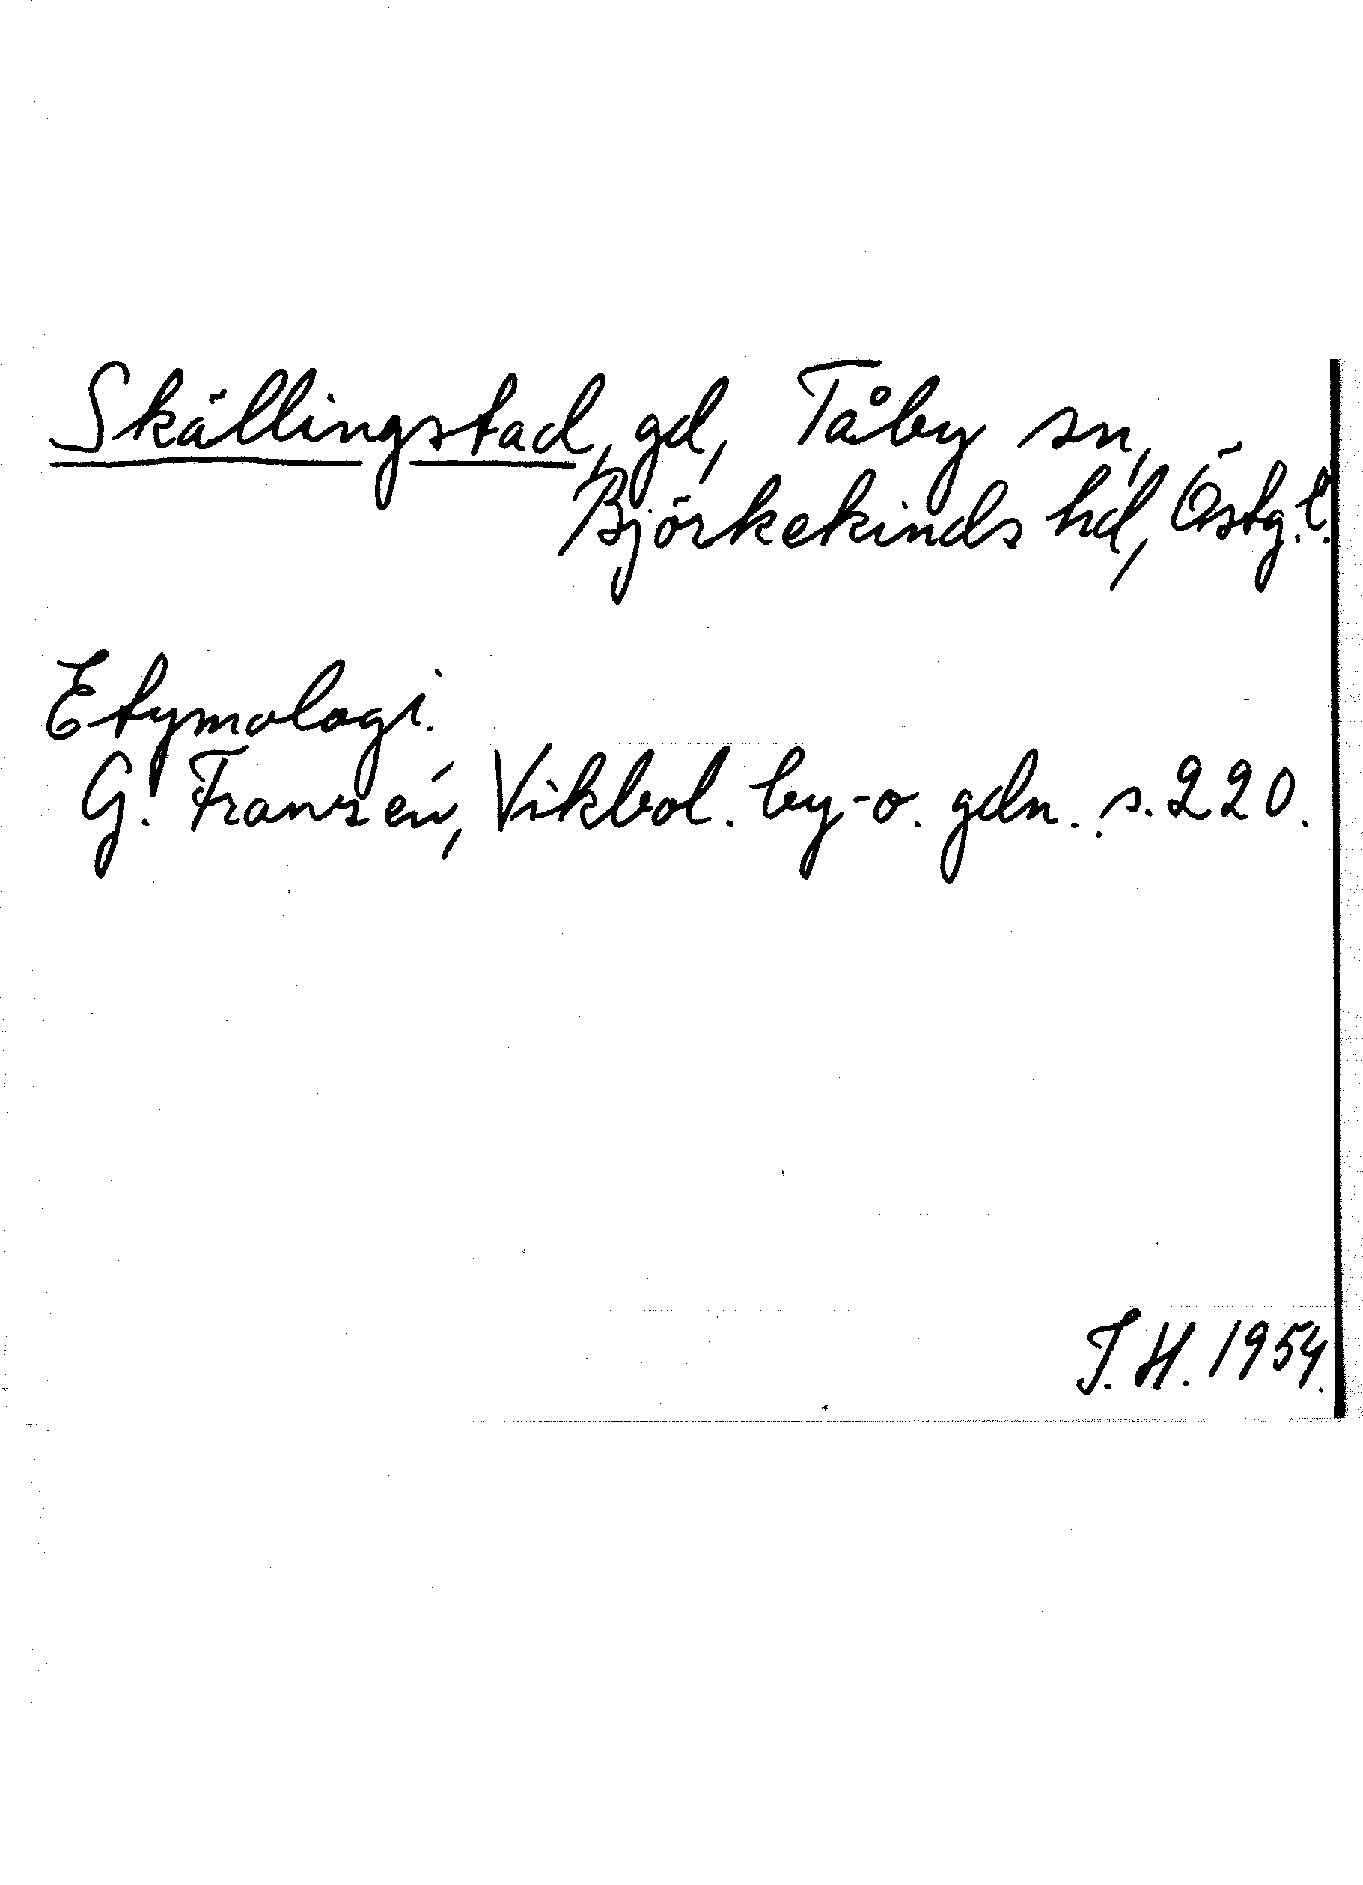 Skällingstad, gd, Tåby sn,
Björkekinds hd, Östg.l.
Etymologi.
G. Franzén, Vikbol. by- o. gdn. s. 220.
T. H. 1954.